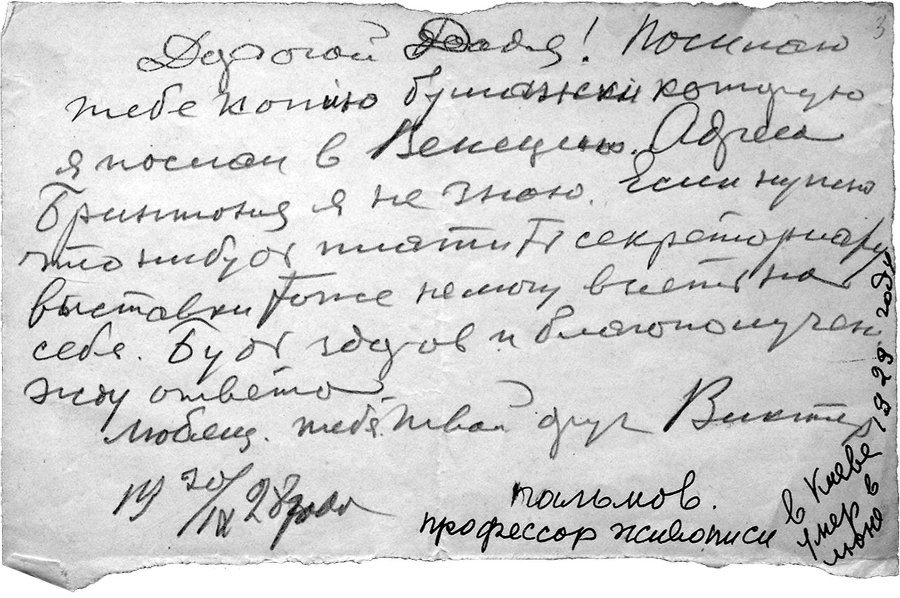 3
Дорогой Додя! Посылаю
тебе копию бумажки которую
я послал в Венецию. Адреса
Бринтона я не знаю. Если нужно
что нибудь платить секретариату
выставки тоже немогу взять на
себя. Будь здоров и благополучен
жду ответа
Любящ. тебя твой друг Виктор
19 20/IX 28 года
пальмов.
профессор живописи
умер в
Киеве
в июне
1929 году